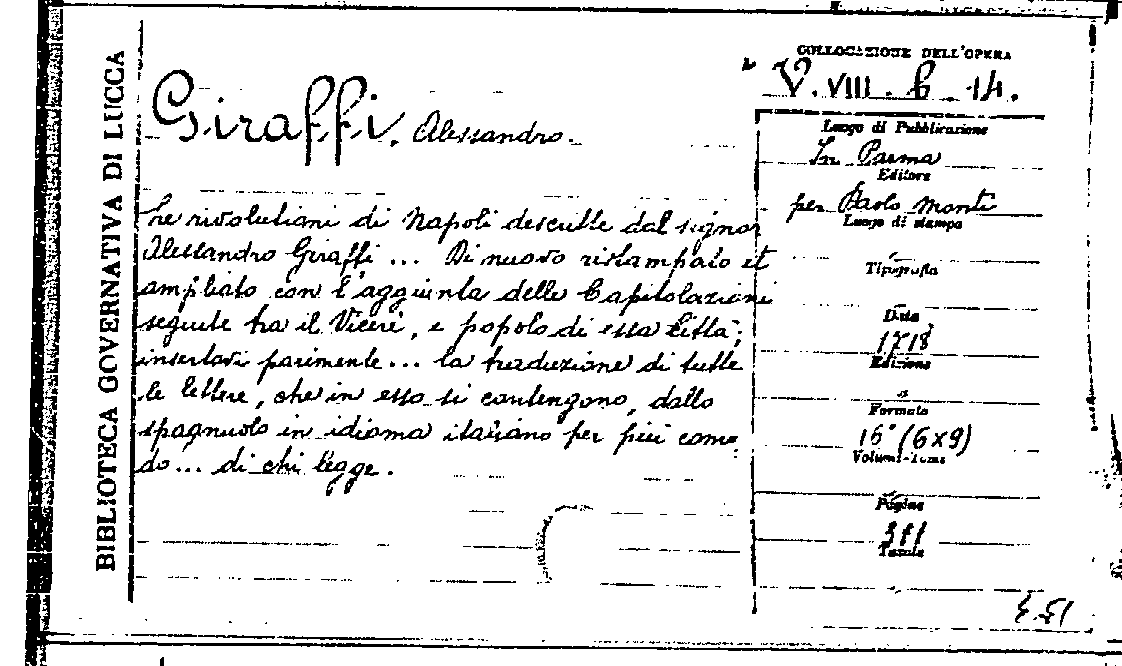 BIBLIOTECA GOVERNATIVA DI LUCCA
COLLOCAZIONE DELL'OPERA
V. VIII. b 14.
Giraffi, Alessandro.
Le rivolutioni di Napoli descritte dal signor
Alessandro Giraffi ... Di nuovo ristampato et
ampliato con l'aggiunta delle Capitolazioni
seguite tra il Vicerè, e popolo di essa Città;
insertovi parimente ... la traduzione di tutte
le lettere, che in esso si contengono, dallo
spagnuolo in idioma italiano per più como-
do ... di chi legge.
Luogo di Pubblicazione
In Parma
Editore
per Paolo Monti
Luogo di stampa
Tipografia
Data
1718
Edizione
Formato
16° (6x9)
Volumi-Tomi
Pagine
Tavole